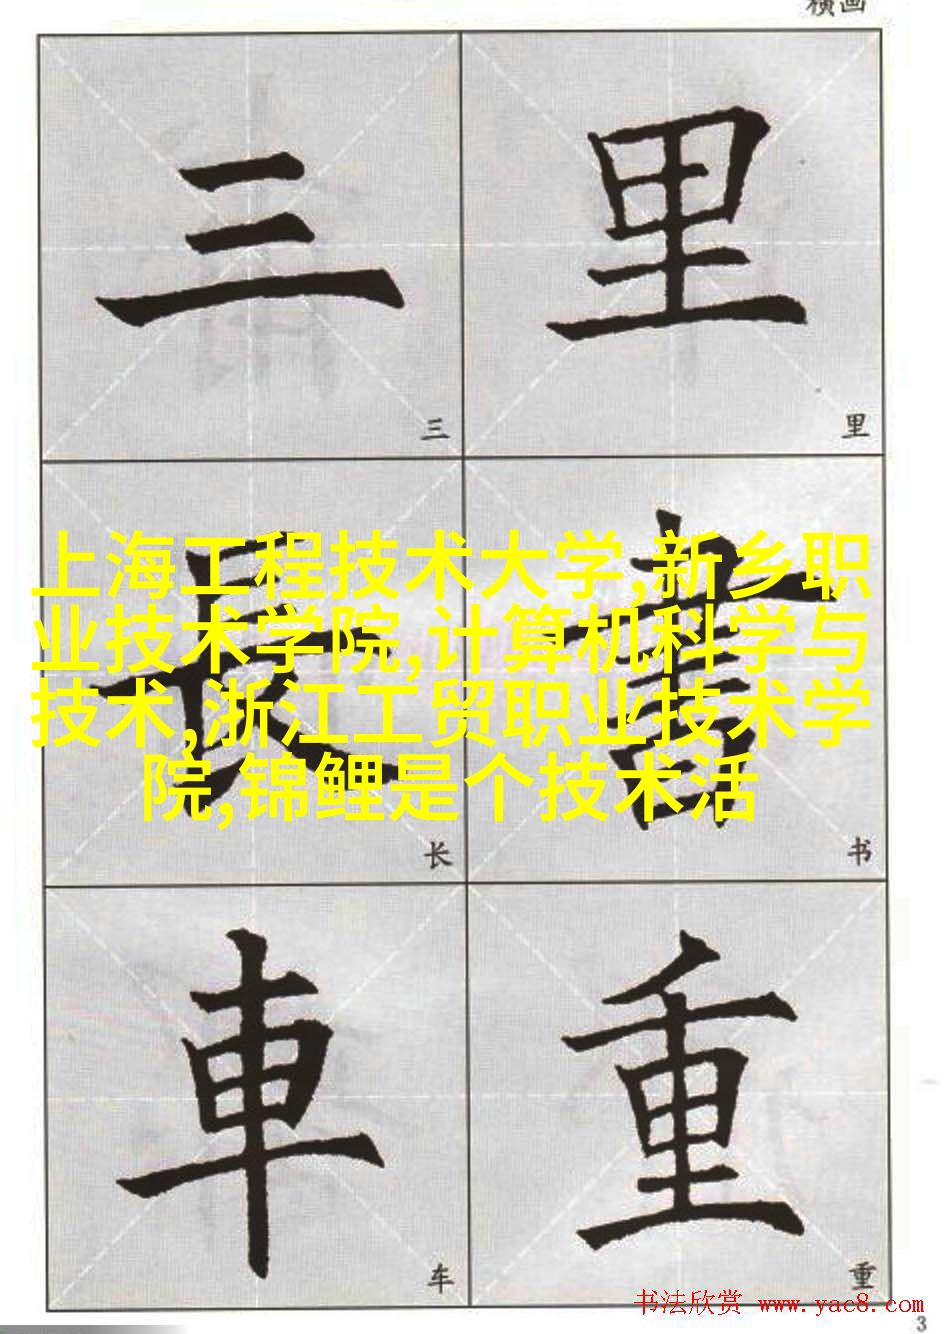 横画
三
里
三
里
上海工程技术大学,新乡职
业技术学院,计算机科学与
技术,浙江工贸职业技术学
院,锦鲤是个技术活
長
書
长
书
車
重
车
重
书法欣赏 www.yac8.com
3